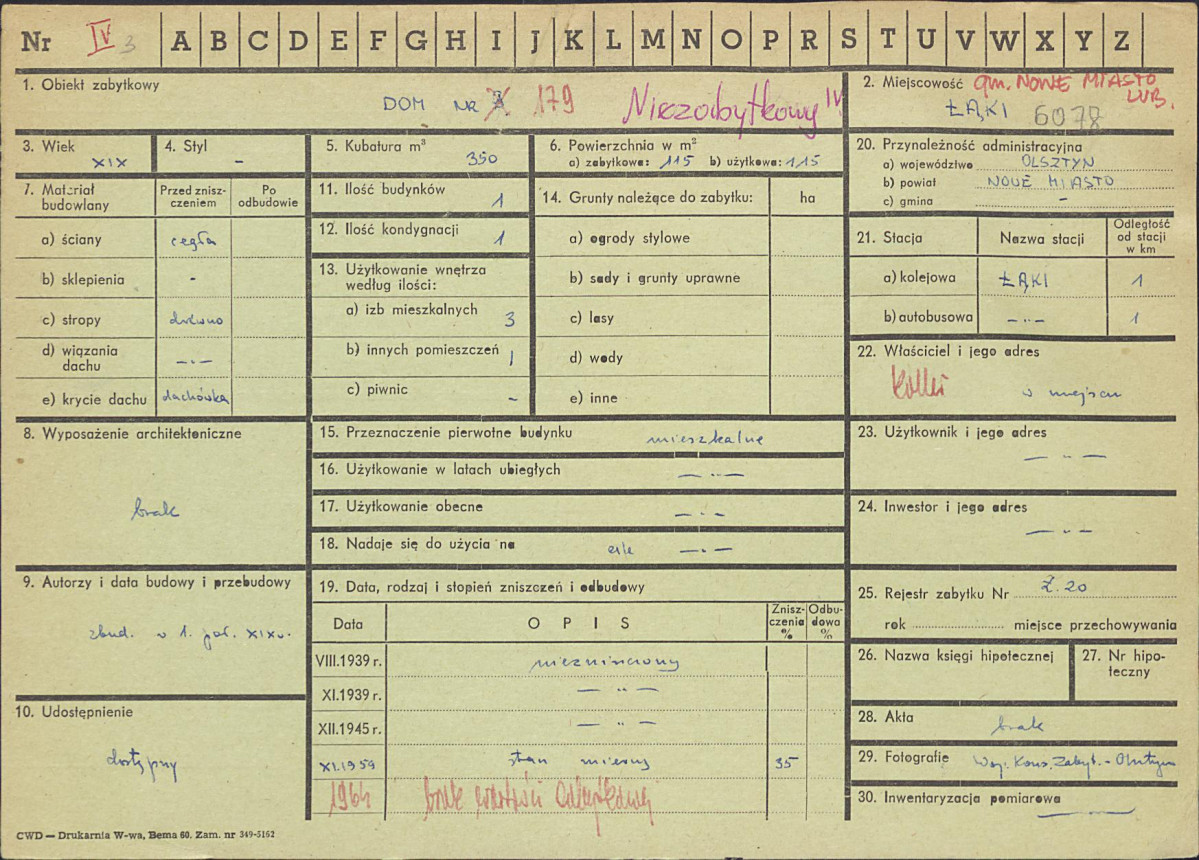 Nr IV 3 A B C D E F G H I J K L M N O P R S T U V W X Y Z
1. Obiekt zabytkowy
DOM NR 179 Niezabytkowy IV
2. Miejscowość gm. NOWE MIASTO LUB.
ŁĄKI 6078
3. Wiek
XIX
4. Styl
-
5. Kubatura m³
350
6. Powierzchnia w m²
a) zabytkowa: 115 b) użytkowa: 115
20. Przynależność administracyjna
a) województwo OLSZTYN
b) powiat NOWE MIASTO
c) gmina -
7. Materiał budowlany
Przed zniszczeniem
Po odbudowie
a) ściany cegła
b) sklepienia -
c) stropy drewno
d) wiązania dachu -"-
e) krycie dachu dachówka
11. Ilość budynków
1
12. Ilość kondygnacji
1
13. Użytkowanie wnętrza
według ilości:
a) izb mieszkalnych 3
b) innych pomieszczeń 1
c) piwnic -
14. Grunty należące do zabytku: ha
a) ogrody stylowe
b) sady i grunty uprawne
c) lasy
d) wody
e) inne
21. Stacja Nazwa stacji Odległość od stacji w km
a) kolejowa ŁĄKI 1
b) autobusowa -"- 1
22. Właściciel i jego adres
w miejscu
8. Wyposażenie architektoniczne
brak
15. Przeznaczenie pierwotne budynku mieszkalne
16. Użytkowanie w latach ubiegłych -"-
17. Użytkowanie obecne -"-
18. Nadaje się do użycia na cele -"-
23. Użytkownik i jego adres
-"-
24. Inwestor i jego adres
-"-
9. Autorzy i data budowy i przebudowy
zbud. w 1. poł. XIX w.
19. Data, rodzaj i stopień zniszczeń i odbudowy
Data OPIS Zniszczenia % Odbudowa %
VIII.1939 r. niezniszczony
XI.1939 r. -"-
XII.1945 r. -"-
XI.1959 stan mierny 35
1964 brak wartości zabytkowej
25. Rejestr zabytku Nr Ł.20
rok miejsce przechowywania
26. Nazwa księgi hipotecznej
27. Nr hipoteczny
10. Udostępnienie
dostępny
28. Akta
brak
29. Fotografie Woj. Kons. Zabyt. - Olsztyn
30. Inwentaryzacja pomiarowa
-
CWD — Drukarnia W-wa, Bema 60. Zam. nr 349-5162